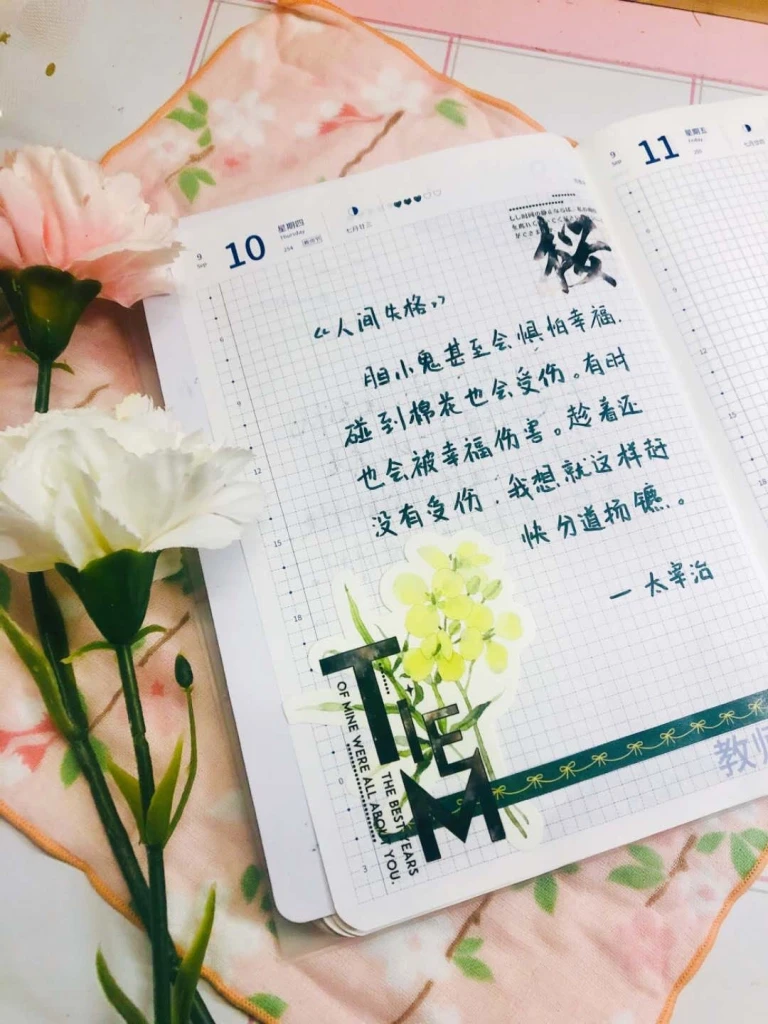 9
Sep
10
星期四
Thursday
254
七月廿三
教师节
9
Sep
11
星期五
Friday
255
七月廿四
桜
《人间失格》
胆小鬼甚至会惧怕幸福.
碰到棉花也会受伤。有时
也会被幸福伤害。趁着还
没有受伤.我想就这样赶
快分道扬镳。
— 太宰治
6
9
12
15
18
0
3
12
15
18
TIEM
OF MINE WERE ALL ABOUT YOU.
THE BEST YEARS
教师